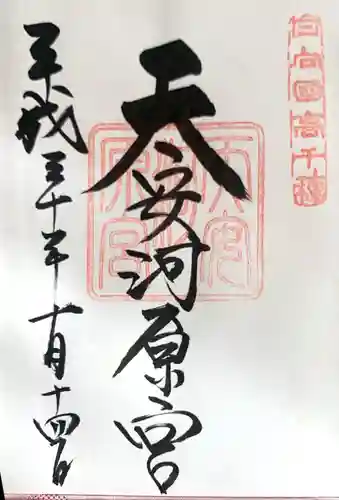 日向国高千穂
天安河原宮
平成三十年十月十四日